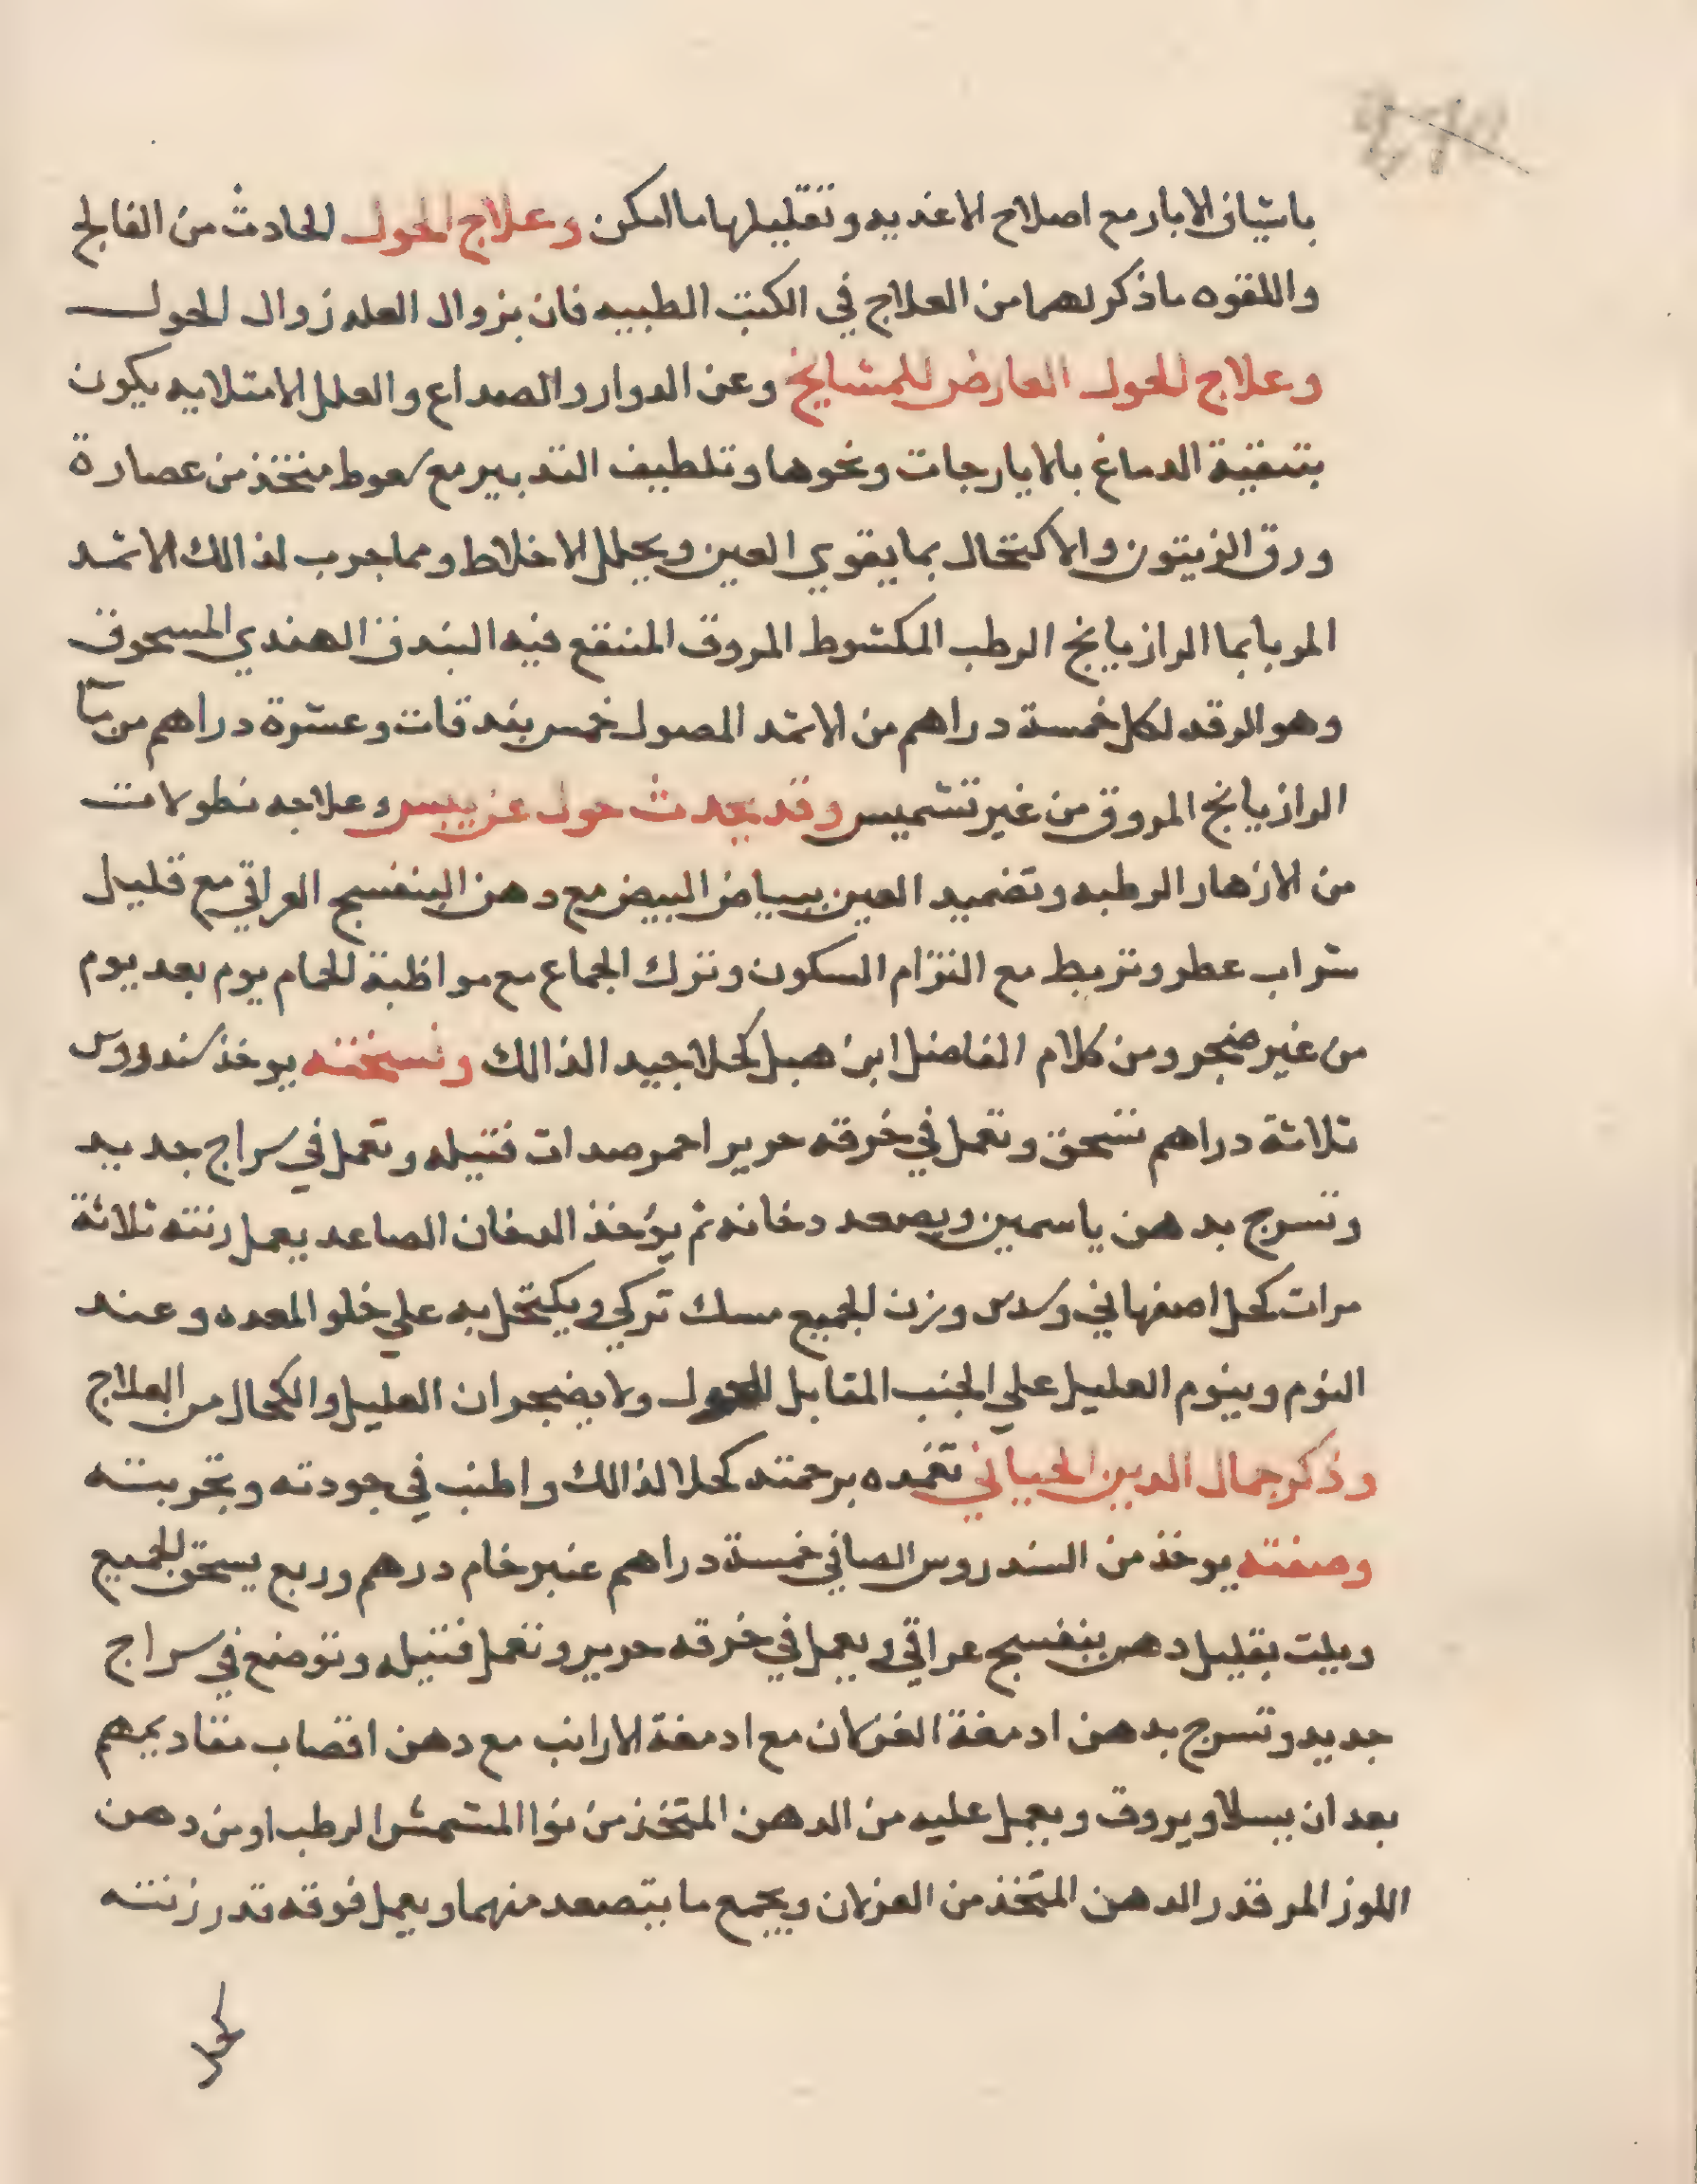 باشياف الابار مع اصلاح الاغديه وتقليلها ما امكن وعلاج الحول الحادث من الفالج
واللقوه ما ذكر لهما من العلاج في الكتب الطبيه فان بزوال العله زوال الحول
وعلاج الحول العارض للمشايخ وعن الدوار والصداع والعلل الامتلايه يكون
بتنقية الدماغ بالايارجات ونحوها وتلطيف التدبير مع سعوط متخذ من عصارة
ورق الزيتون والاكتحال بما يقوي العين ويحلل الاخلاط ومما جرب لذالك الاتمد
المربا بما الرازيانج الرطب المكشوط المروق المنقع فيه البندق الهندي المسحوق
وهو الرقه لكل خمسة دراهم من الاثمد المصول خمس بندقات وعشرة دراهم من ما
الرازيانج المروق من غير تشميس وقد يحدث حول عن يبس وعلاجه نطولات
من الازهار الرطبه وتضميد العين ببياض البيض مع دهن البنفسج العراقي مع قليل
شراب عطر وتربط مع التزام السكون وترك الجماع مع مواظبة الحمام يوم بعد يوم
من غير ضجر ومن كلام الفاضل ابن هبل كحلا جيد الذالك ونسخته يوخذ سندروس
ثلاثة دراهم تسحق وتعمل في خرقه حرير احمر صدات فتيله وتعمل في سراج جديد
وتسرج بدهن ياسمين ويصعد دخانه ثم يؤخذ الدخان الصاعد يعمل زنته ثلاثة
مرات كحل اصفهاني وسدس وزن الجميع مسك تركي ويكتحل به علي خلو المعده وعند
النوم وينوم العليل علي الجنب المقابل للحول ولا يضجران العليل والكحال من العلاج
وذكر جمال الدين الحياني تغمده برحمته كحلا لذالك واطنب في جودته وتجربته
وصفته يوخذ من السندروس الصافي خمسة دراهم عنبر خام درهم وربع يسحق الجميع
ويلت بقليل دهن بنفسج عراقي ويعمل في خرقه حرير وتعمل فتيله وتوضع في سراج
جديد وتسرج بدهن ادمغة الغزلان مع ادمغة الارانب مع دهن اقصاب مقاديمهم
بعد ان يسلا ويروق ويعمل عليه من الدهن المتخذ من نوا المشمش الرطب او من دهن
اللوز المر قدر الدهن المتخذ من الغزلان ويجمع ما يتصعد منهما ويعمل فوقه قدر زنته